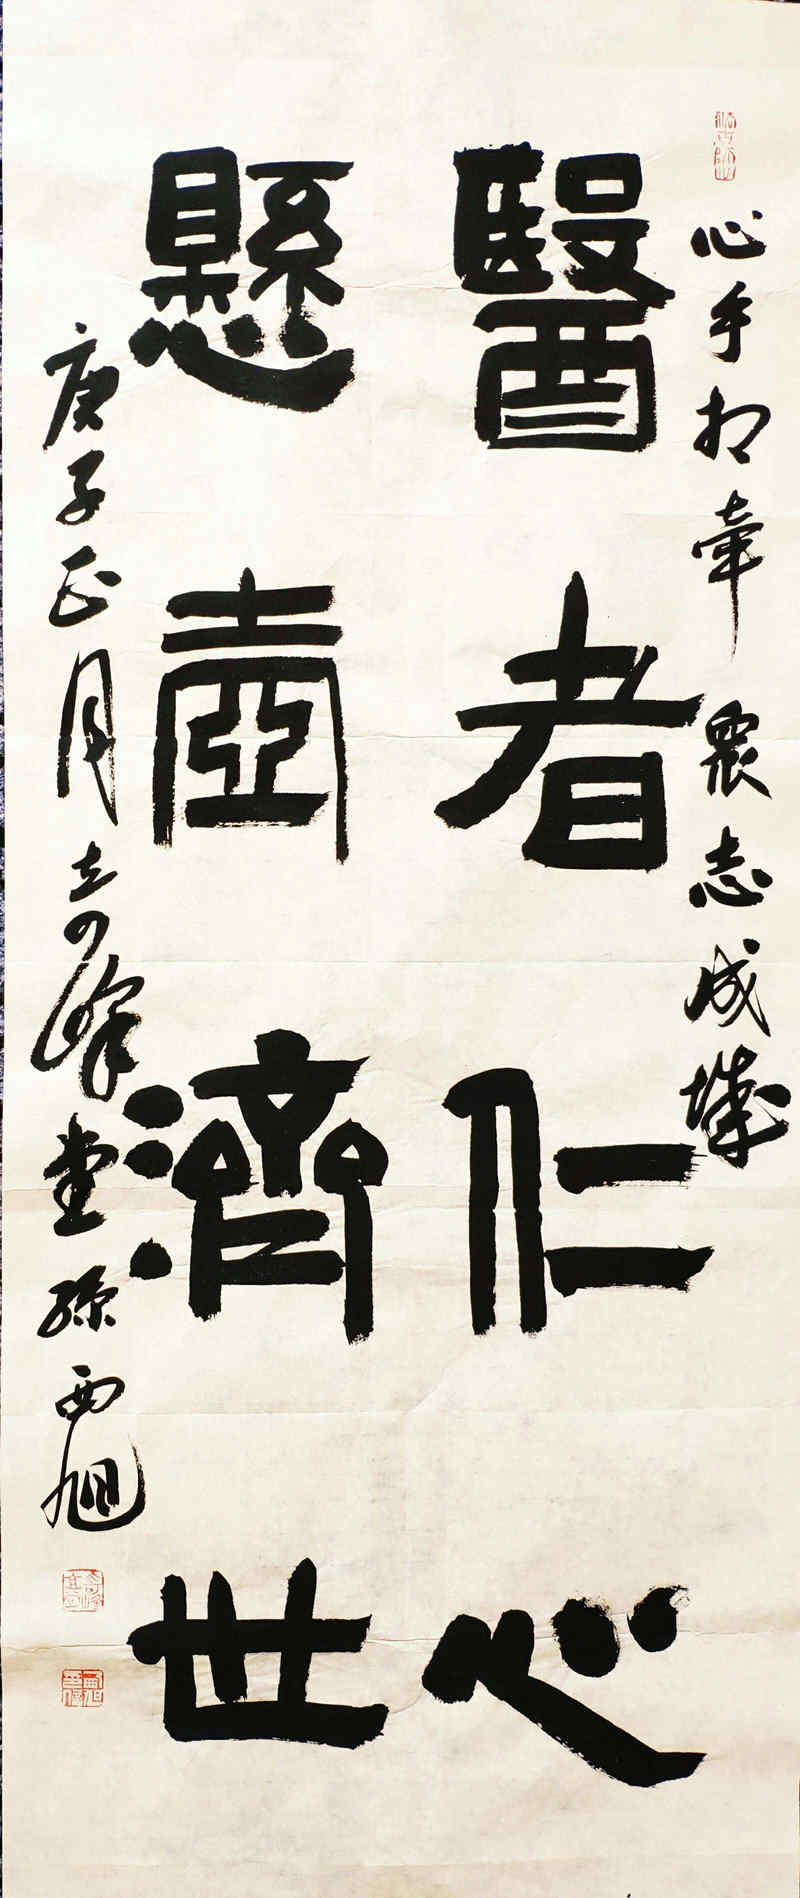 心手相牽 衆志成城
醫者仁心
懸壺濟世
庚子正月奇峰堂孫西旭